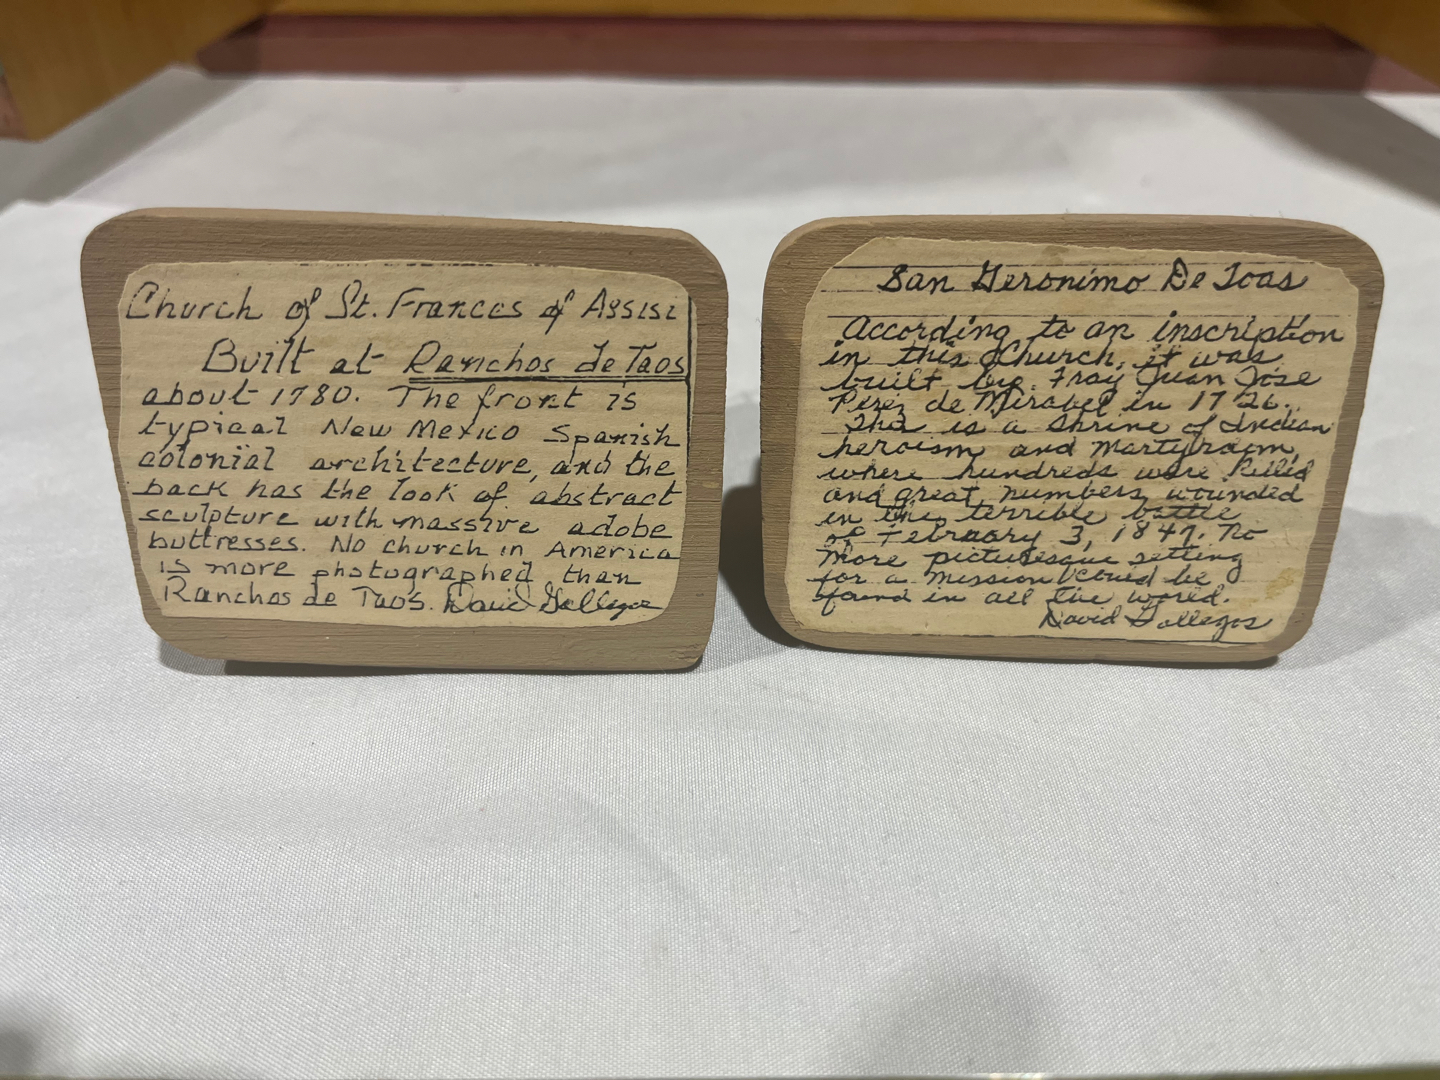 Church of St. Frances of Assisi
Built at Ranchos de Taos
about 1780. The front is
typical New Mexico Spanish
colonial architecture, and the
back has the look of abstract
sculpture with massive adobe
buttresses. No church in America
is more photographed than
Ranchos de Taos. David Gallegos
San Geronimo De Toas
According to an inscription
in this Church, it was
built by Fray Juan Jose
Perez de Mirabel in 1726.
This is a shrine of Indian
heroism and Martydraom,
where hundreds were killed
and great numbers wounded
in the terrible battle
of February 3, 1847. No
more picturesque setting
for a mission could be
found in all the world.
David Gallegos